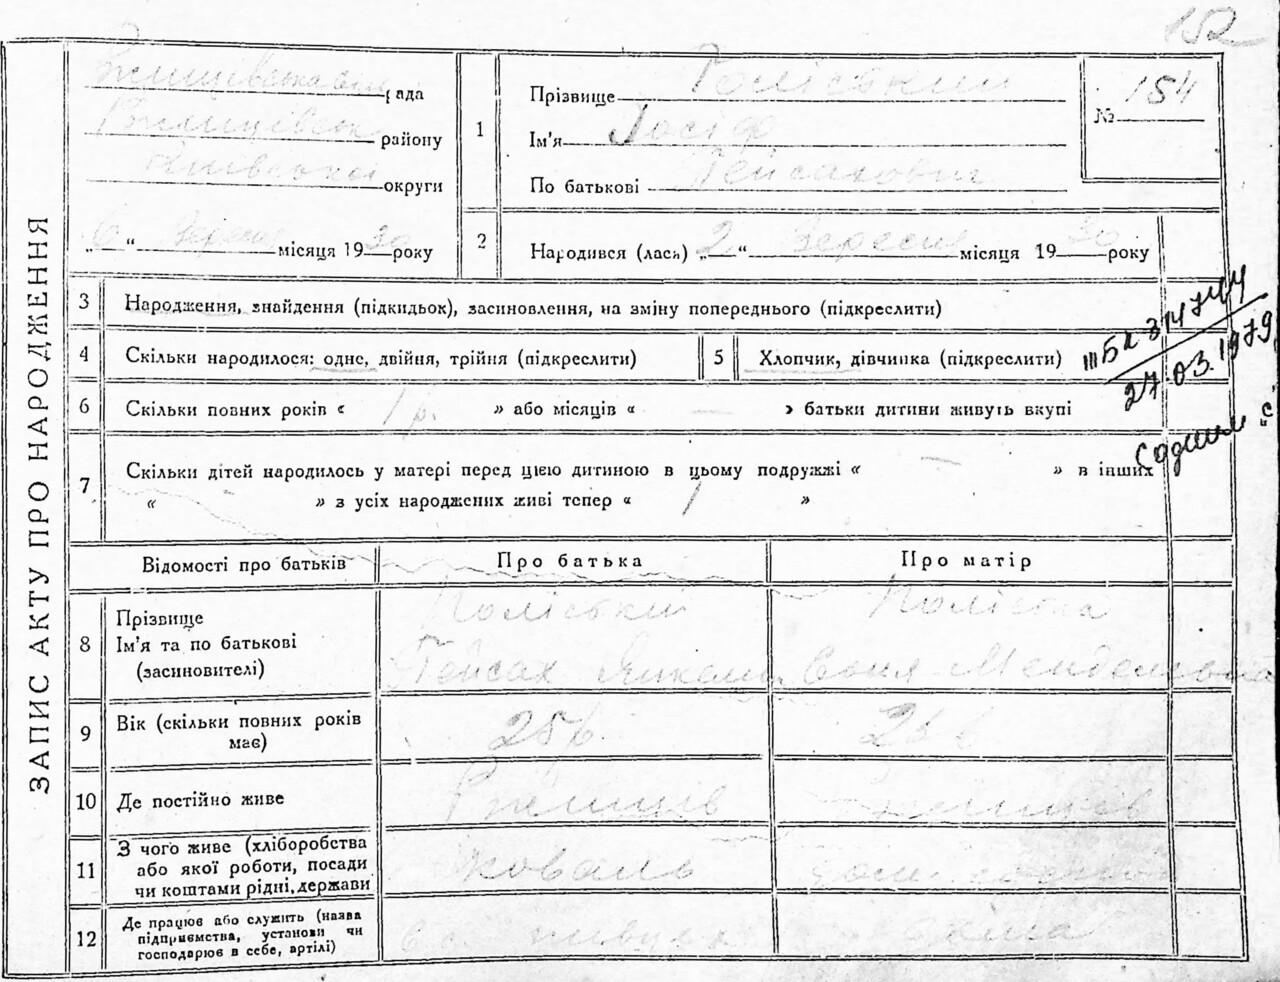 152
ЗАПИС АКТУ ПРО НАРОДЖЕННЯ
Ржищівська рада
Ржищівськ району
Київської округи
„ 6 “ Вересня місяця 19 30 року
1
Прізвище Поліський
Ім'я Йосіф
По батькові Пейсахович
№ 154
2 Народився (лась) „ 2 “ Вересня місяця 19 30 року
3 Народження, знайдення (підкидьок), засиновлення, на зміну попереднього (підкреслити)
4 Скільки народилося: одне, двійня, трійня (підкреслити)
5 Хлопчик, дівчинка (підкреслити)
III БК 314744
27.03.1979
с одним „с“
6 Скільки повних років « 1 р. » або місяців « — » батьки дитини живуть вкупі
7 Скільки дітей народилось у матері перед цією дитиною в цьому подружжі « — » в інших
« » з усіх народжених живі тепер « 1 »
Відомості про батьків Про батька Про матір
8 Прізвище
Ім'я та по батькові
(засиновителі)
Поліський Поліська
Пейсах Соня Мендельовна
9 Вік (скільки повних років
має)
25 р. 23 р
10 Де постійно живе Ржищів Ржищів
11 З чого живе (хліборобства
або якої роботи, посади
чи коштами рідні, держави
коваль
12 Де працює або служить (назва
підприємства, установи чи
господарює в себе, артілі)